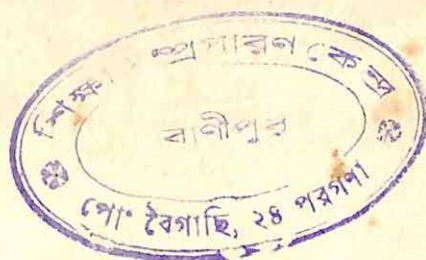 শিক্ষা সম্প্রসারণ কেন্দ্র
বানীপুর
পোঃ বৈগাছি, ২৪ পরগণা